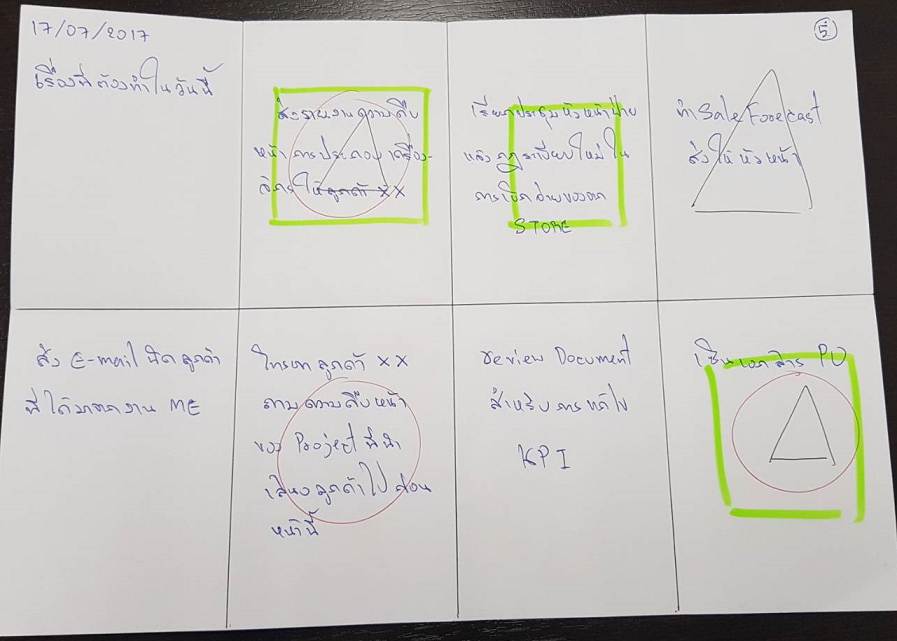 17/07/2017
เรื่องที่ต้องทำในวันนี้
ส่งรายงานความคืบ
หน้าการประกอบเครื่อง-
จักรให้ลูกค้า XX
เรียกประชุมหัวหน้าฝ่าย
แจ้งกฎระเบียบใหม่ใน
การเบิกจ่ายของจาก
STORE
5
ทำ Sale Forecast
ส่งให้หัวหน้า
ส่ง E-mail นัดลูกค้า
ที่ได้มาจากงาน ME
โทรหาลูกค้า XX
ถามความคืบหน้า
ของ Project ที่นำ
เสนอลูกค้าไปก่อน
หน้านี้
review Document
สำหรับการแก้ไข
KPI
เซ็นเอกสาร PO